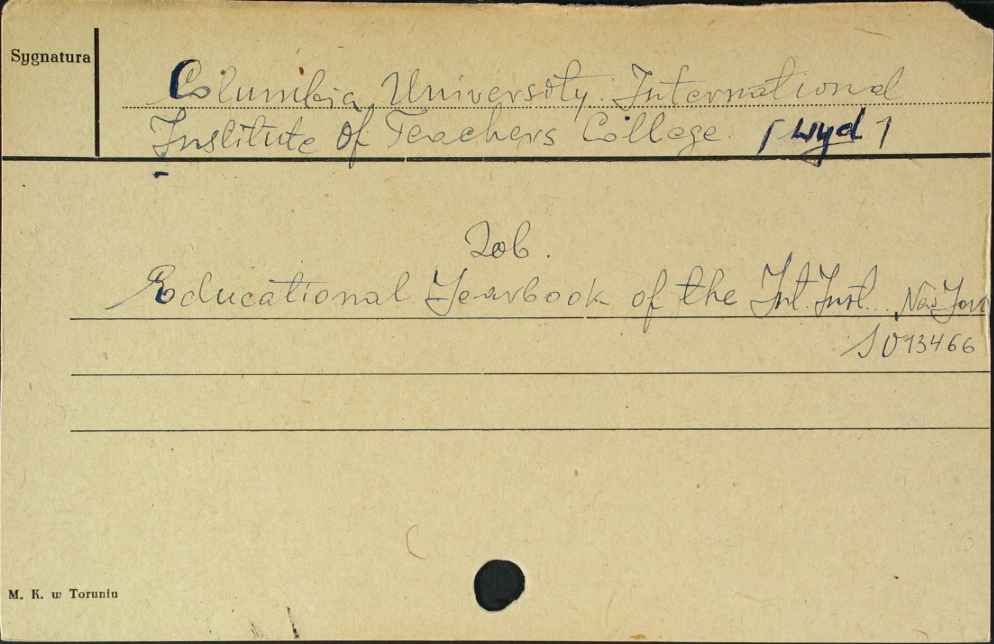 Sygnatura
Columbia University International
Institute of Teachers College. [wyd]
Zob.
Educational Yearbook of the Int. Inst... New York
S 093466
M. K. w Toruniu